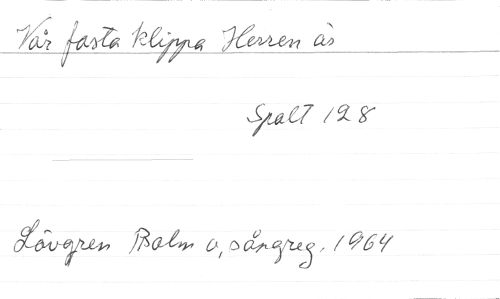 Vår fasta klippa Herren är
Spalt 128
Lövgren Psalm o, sångreg. 1964